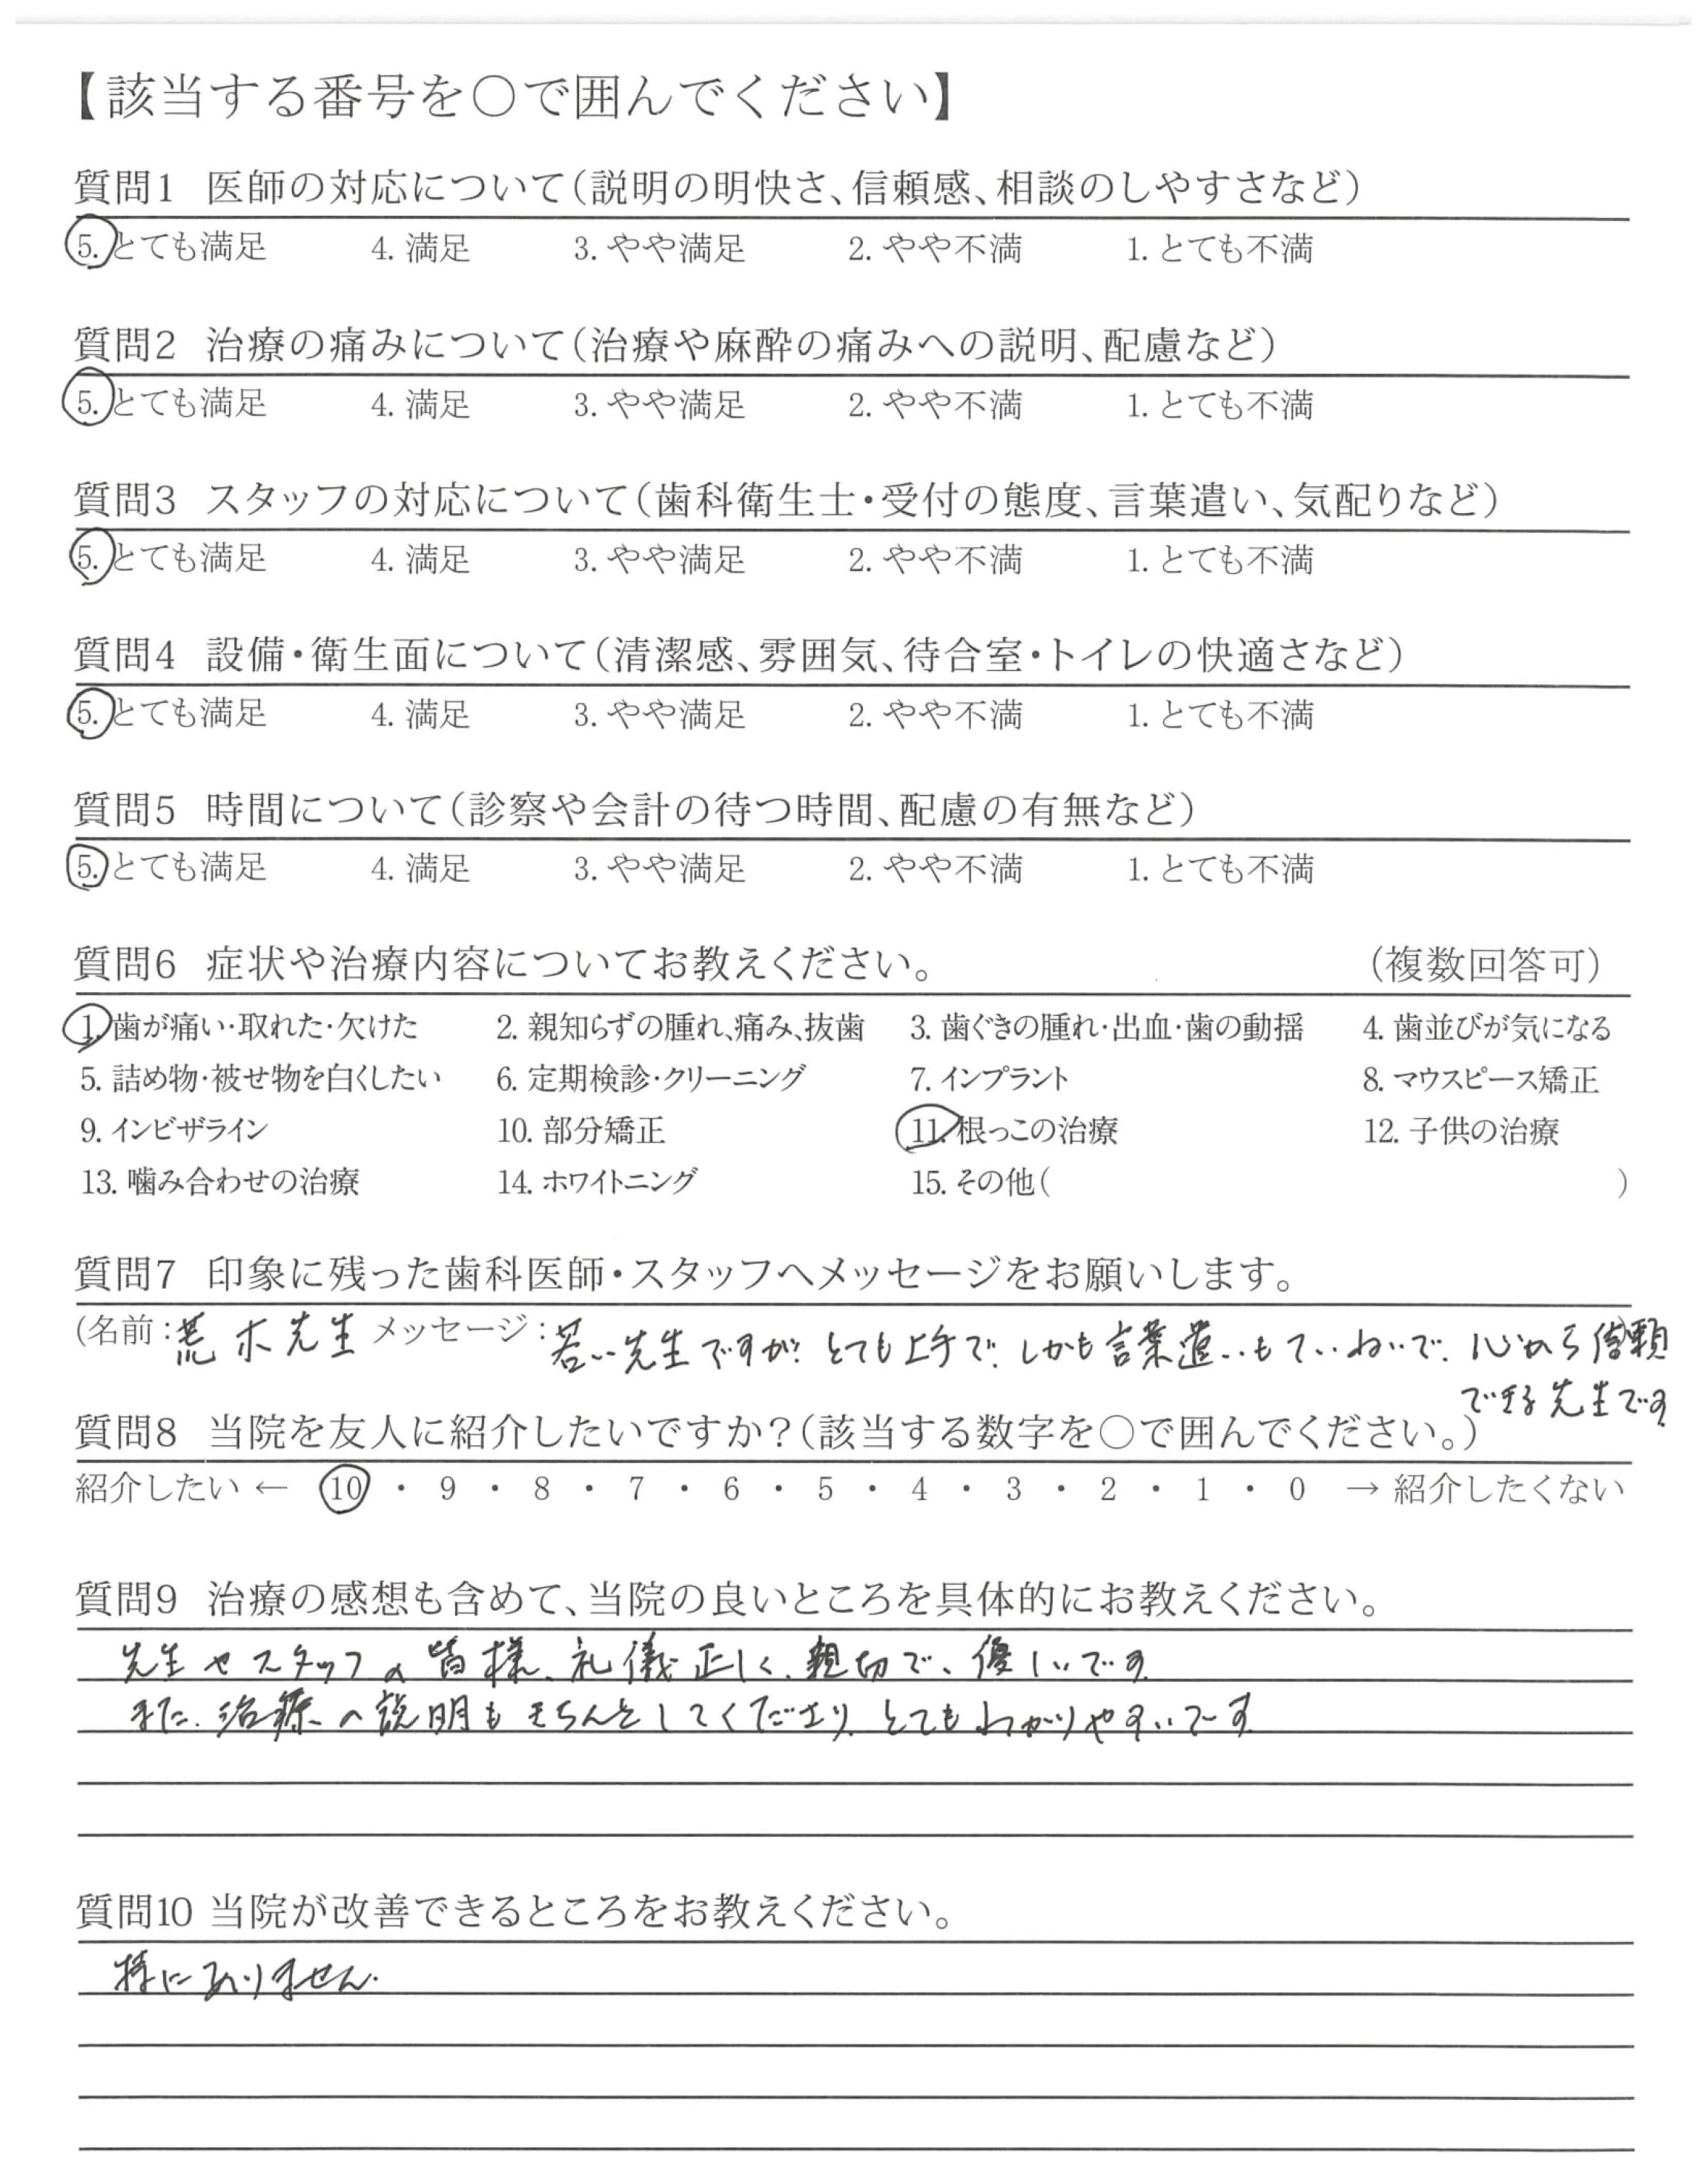 【該当する番号を〇で囲んでください】
質問1 医師の対応について(説明の明快さ、信頼感、相談のしやすさなど)
5. とても満足 4. 満足 3. やや満足 2. やや不満 1. とても不満
質問2 治療の痛みについて(治療や麻酔の痛みへの説明、配慮など)
5. とても満足 4. 満足 3. やや満足 2. やや不満 1. とても不満
質問3 スタッフの対応について(歯科衛生士・受付の態度、言葉遣い、気配りなど)
5. とても満足 4. 満足 3. やや満足 2. やや不満 1. とても不満
質問4 設備・衛生面について(清潔感、雰囲気、待合室・トイレの快適さなど)
5. とても満足 4. 満足 3. やや満足 2. やや不満 1. とても不満
質問5 時間について(診察や会計の待つ時間、配慮の有無など)
5. とても満足 4. 満足 3. やや満足 2. やや不満 1. とても不満
質問6 症状や治療内容についてお教えください。 (複数回答可)
1. 歯が痛い・取れた・欠けた 2. 親知らずの腫れ、痛み、抜歯 3. 歯ぐきの腫れ・出血・歯の動揺 4. 歯並びが気になる
5. 詰め物・被せ物を白くしたい 6. 定期検診・クリーニング 7. インプラント 8. マウスピース矯正
9. インビザライン 10. 部分矯正 11. 根っこの治療 12. 子供の治療
13. 噛み合わせの治療 14. ホワイトニング 15. その他( )
質問7 印象に残った歯科医師・スタッフへメッセージをお願いします。
(名前:荒木先生 メッセージ:若い先生ですが、とても上手で、しかも言葉遣いもていねいで、心から信頼
できる先生です
質問8 当院を友人に紹介したいですか?(該当する数字を〇で囲んでください。)
紹介したい ← 10 ・ 9 ・ 8 ・ 7 ・ 6 ・ 5 ・ 4 ・ 3 ・ 2 ・ 1 ・ 0 → 紹介したくない
質問9 治療の感想も含めて、当院の良いところを具体的にお教えください。
先生やスタッフの皆様、礼儀正しく、親切で、優しいです
また、治療の説明もきちんとしてくださり、とてもわかりやすいです
質問10 当院が改善できるところをお教えください。
特にありません.